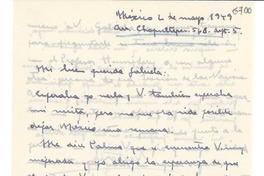 6700
México 2 de mayo 1949
Av. Chapultepec 568. dept. 5.
Mi muy querida Gabriela:
Esperaba yo verla y V. también esperaba
mi visita, pero no me ha sido posible
dejar México una semana.
Me dice Palma que se encuentra V. muy
mejorada y yo abrigo la esperanza de que